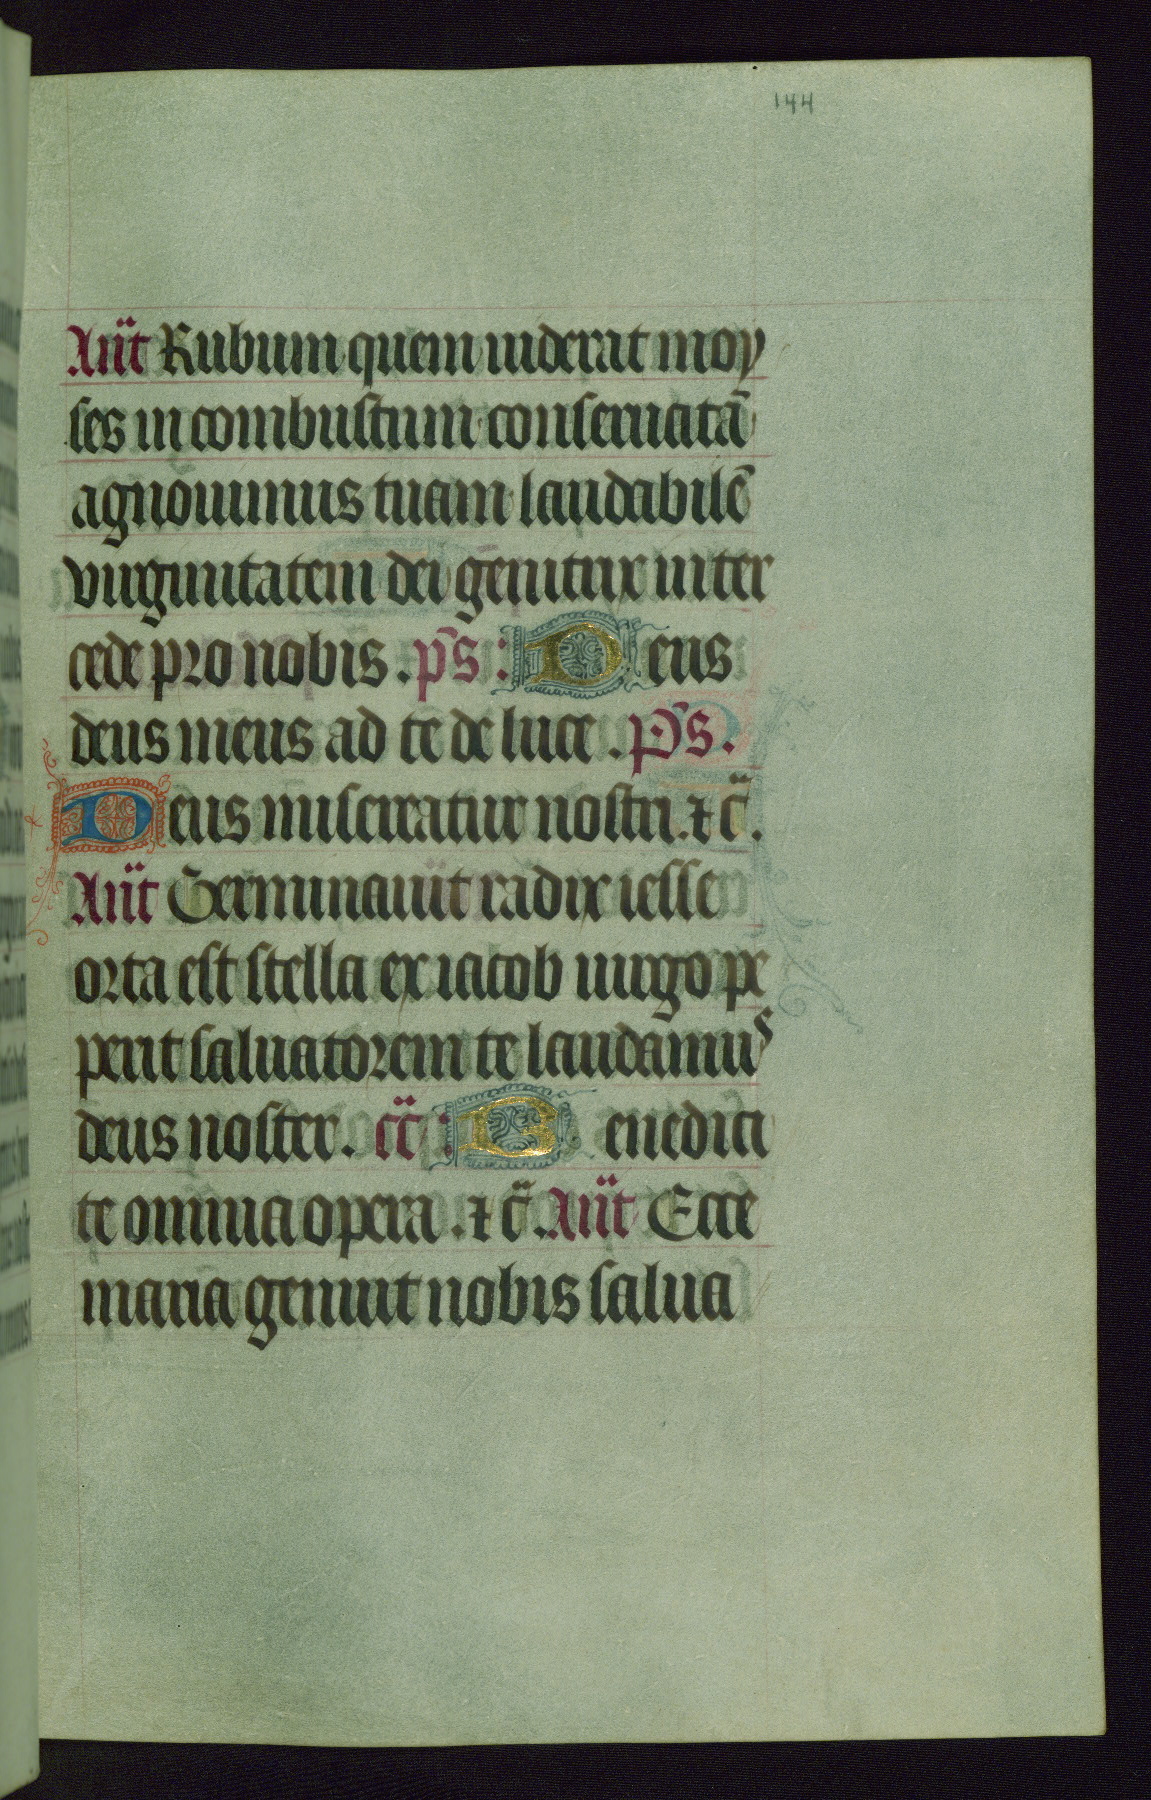 144
Añt Rubum quem uiderat moy
ses in combustum conseruatā
agnouimus tuam laudabilē
virginitatem dei genitrix inter
cede pro nobis . p̄s : Deus
deus meus ad te de luce . P̄s .
Deus misereatur nostri . ⁊ c̄ .
Añt Germinauit radix iesse
orta est stella ex iacob uirgo pe
perit saluatorem te laudamus
deus noster . c̄c̄ : Benedici
te omnia opera . ⁊ c̄ . Añt Ecce
maria genuit nobis salua